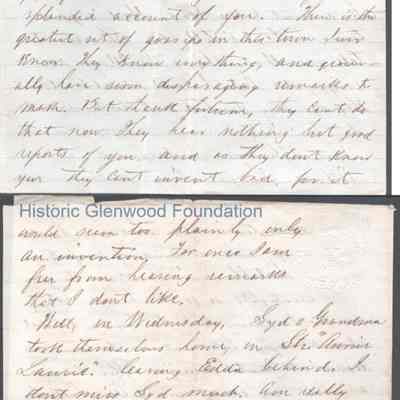 splendid account of you. There is the
greatest set of gossips in this town I ever
Know. They Know everything, and gener-
ally have some disparaging remarks to
make. But thank fortune, they can't do
that now They hear nothing but good
reports of you, and as they don't Know
you they can't invent bad, for it
Historic Glenwood Foundation
would seem too plainly only
an invention, For once I am
free from hearing remarks
that I don't like.
Well, on Wednesday, Syd & Grandma
took themselves home, on Str "Annie
Laurie." leaving Edda behind. I
don't miss Syd much. Am really